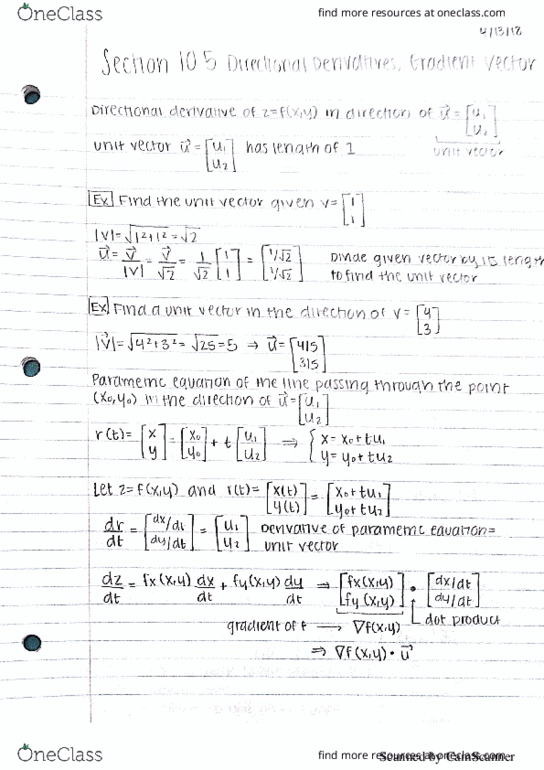 OneClass find more resources at oneclass.com
4/13/18
Section 10.5 Directional Derivatives, Gradient Vector
Directional derivative of z=f(x,y) in direction of u⃗ = [u₁ u₂]
unit vector
unit vector u⃗ = [u₁ u₂] has length of 1
Ex Find the unit vector given v= [1 1]
|v|=√1²+1² =√2
u⃗ = v⃗/|v| = v⃗/√2 = 1/√2 [1 1] = [1/√2 1/√2] Divide given vector by its length
to find the unit vector
Ex Find a unit vector in the direction of v= [4 3]
|v⃗|=√4²+3² =√25=5 → u⃗= [4/5 3/5]
Parametric equation of the line passing through the point
(x₀,y₀) in the direction of u⃗= [u₁ u₂]
r(t)= [x y] = [x₀ y₀] + t [u₁ u₂] ⇒ { x=x₀+tu₁
y=y₀+tu₂
Let z=f(x,y) and r(t)= [x(t) y(t)] = [x₀+tu₁ y₀+tu₂]
dr/dt = [dx/dt dy/dt] = [u₁ u₂] derivative of parametric equation=
unit vector
dz/dt = fx(x,y) dx/dt + fy(x,y) dy/dt → [fx(x,y) fy(x,y)] • [dx/dt dy/dt]
dot product
gradient of f → ∇f(x,y)
⇒ ∇f(x,y)• u⃗
OneClass find more resources at oneclass.com
Scanned by CamScanner